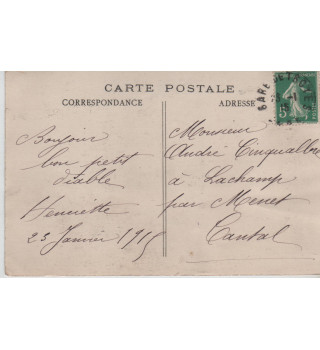 CARTE POSTALE
CORRESPONDANCE
ADRESSE
Bonjour
bon petit
diable
Henriette
23 Janvier 1915
Monsieur
André
à Lachamp
par Menet
Cantal
GARE
5